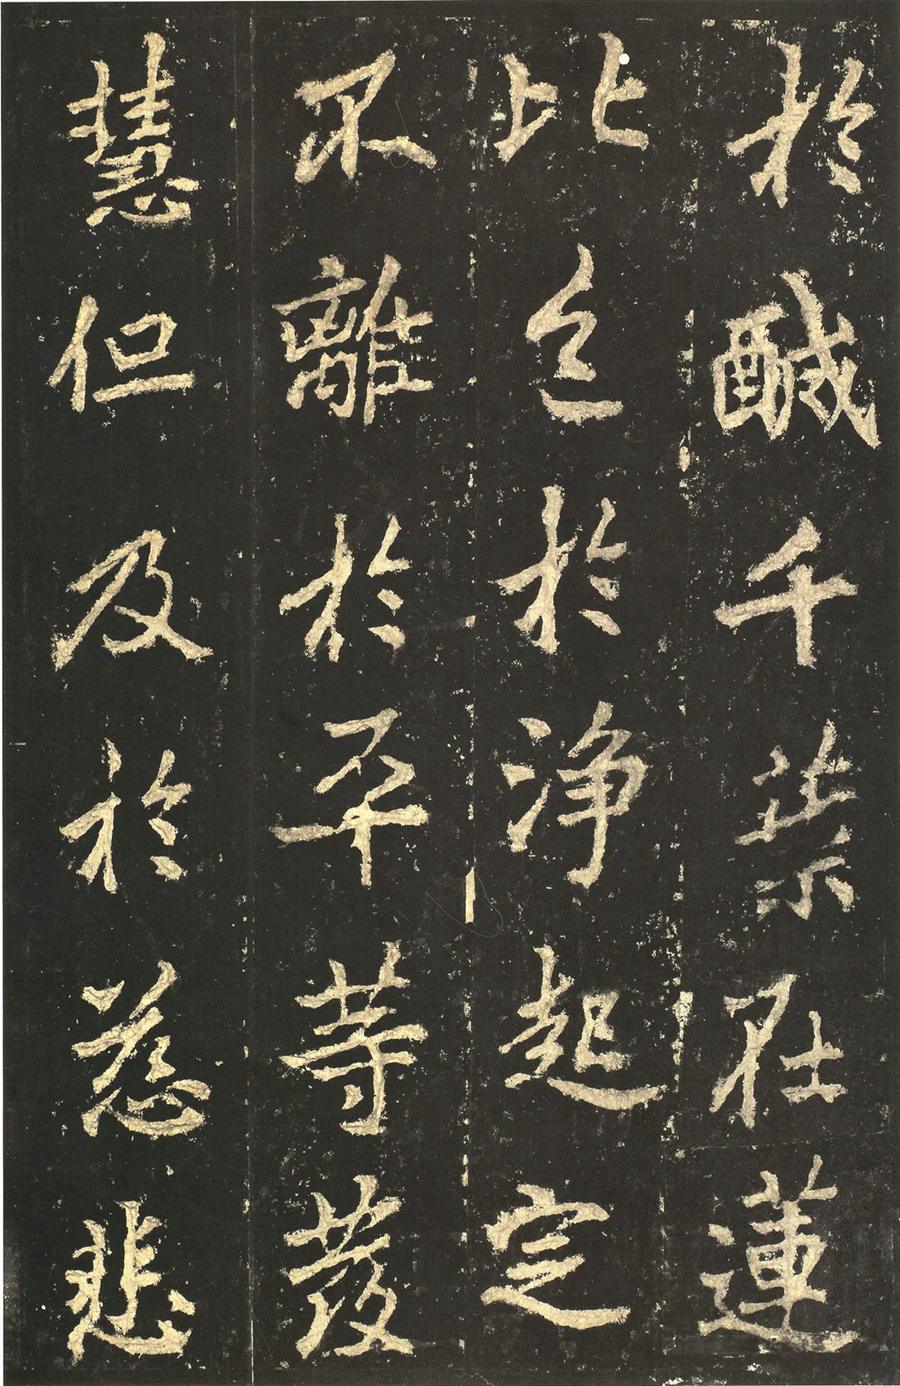 於醎千葉在蓮
比色於淨起定
不離於平等發
慧但及於慈悲